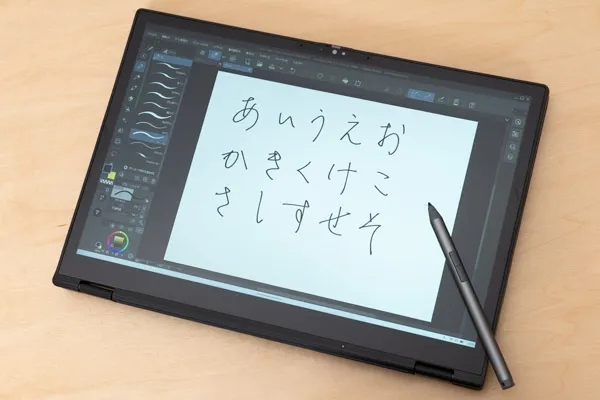 あいうえお
かきくけこ
さしすせそ